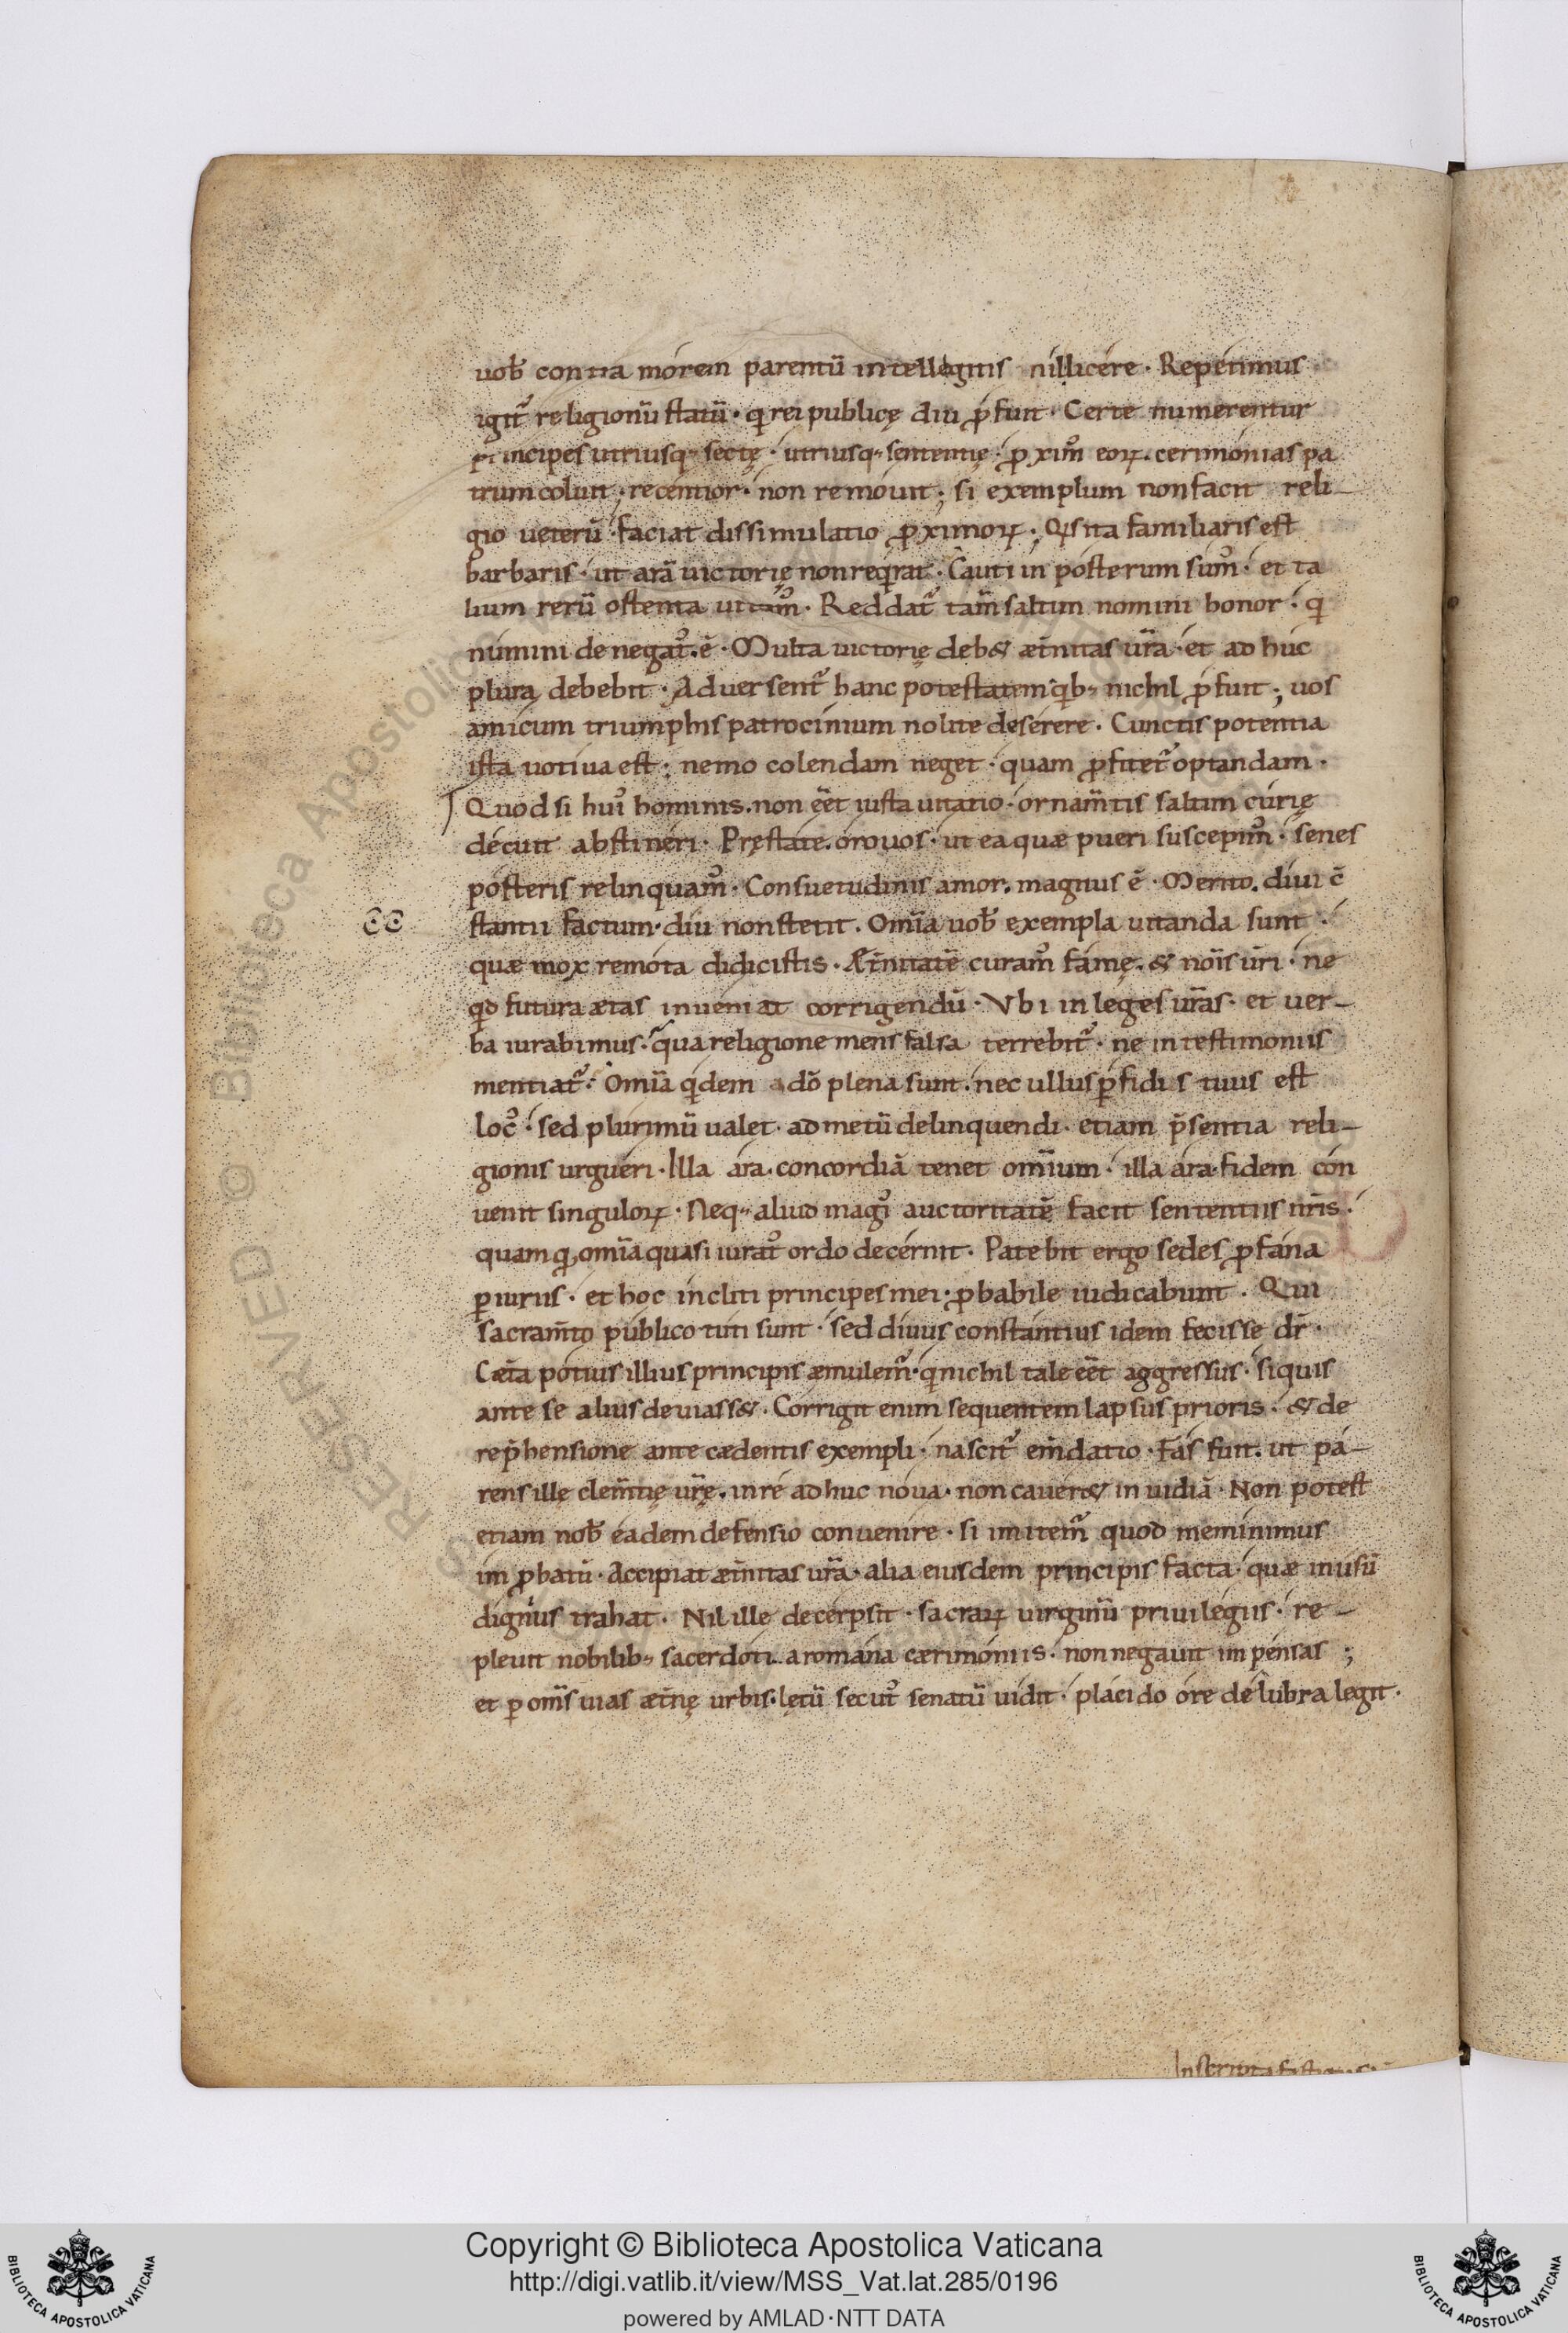 uob̄ contra morem parentū intellegitis nil licere · Repetimus
igit᷑ religionū statū · q̇ rei publicę diu ꝓfuit · Certe numerentur
principes utriusq; sectę · utriusq; sententię · ꝓxim᷒ eoꝝ · cerimonias pa
trum coluit ; recentior · non remouit ; si exemplum non facit reli-
gio ueterū · faciat dissimulatio ꝓximoꝝ · Qis ita familiaris est
barbaris · ut arā uictorię non reqirat · Cauti in posterum sum᷒ · et ta
lium rerū ostenta uitam᷒ · Reddat᷑ tam̄ saltim nomini honor · q̇
numini denegat᷒ · ē · Multa uictorię deb& æt̄nitas ur̄a · et ad huc
plura debebit · Aduersent᷑ hanc potestatem qib; nichil ꝓfuit ; uos
amicum triumphis patrocinium nolite deserere · Cunctis potentia
ista uotiua est · nemo colendam neget · quam ꝓfitet᷑ optandam ·
Quod si hui᷒ hominis · non ēēt iusta uitatio · ornam̄tis saltim curię
decuit abstineri · Pręstate · oro uos · ut ea quæ pueri suscepim᷒ · senes
posteris relinquam᷒ · Consuetudinis amor · magnus ē · Merito · diui c̄
stantii factum · diu non stetit · Om̄ia uob̄ exempla uitanda sunt ·
quæ mox remota didicistis · Æt̄nitatē curam᷒ famę · & nōis ur̄i · ne
qid futura ætas inueniat corrigendū · Vbi in leges ur̄as · et uer-
ba iurabimus · qua religione mens falsa terrebit᷑ · ne in testimoniis
mentiat᷑ · Om̄ia qidem a dō plena sunt · nec ullus ꝑfidis tutus est
loc᷒ · sed plurimū ualet · ad metū delinquendi · etiam p̄sentia reli-
gionis urgueri · Illa ara · concordiā tenet omīum · illa ara · fidem con
uenit singuloꝝ · Neq; aliud magi᷒ auctoritatē facit sententiis nr̄is ·
quam q̇ om̄ia quasi iurat᷒ ordo decernit · Patebit ergo sedes ꝓfana
ꝑiuriis · et hoc incliti principes mei · ꝓbabile iudicabunt · Qui
sacram̄to publico tuti sunt · sed diuus constantius idem fecisse dr̄ ·
Cæt̄a potius illius principis æmulem᷑ · q̇ nichil tale ēēt aggressus · si quis
ante se alius deuiass& · Corrigit enim sequentem lapsus prioris · & de
rep̄hensione ante cædentis exempli · nascit᷑ em̄datio · Fas fuit · ut pa-
rens ille clem̄tię ur̄ę · in re ad huc noua · non cauer& inuidiā · Non potest
etiam nob̄ eadem defensio conuenire · si imitem᷑ quod meminimus
imꝓbatū · Accipiat æt̄nitas ur̄a · alia eiusdem principis facta · quæ in usū
dignius trahat · Nil ille decerpsit · sacraꝝ uirginū priuilegiis · re-
pleuit nobilib; sacerdoti a romana cærimoniis · non negauit impensas ;
et ꝑ om̄s uias æt̄nę urbis · lętū secut᷒ senatū uidit · placido ore delubra legit ·